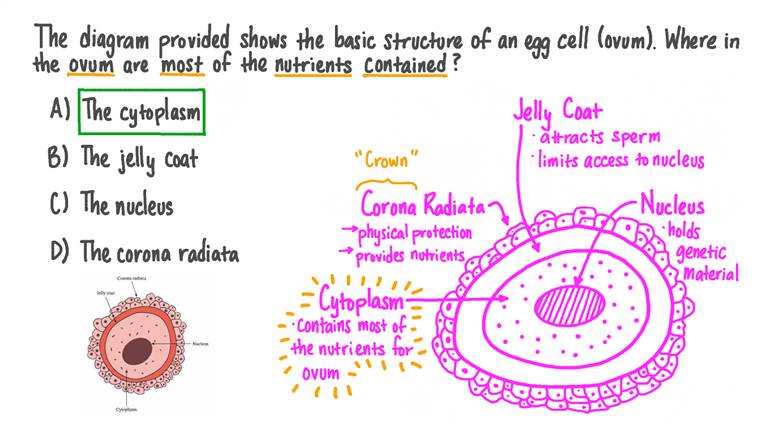 The diagram provided shows the basic structure of an egg cell (ovum). Where in
the ovum are most of the nutrients contained?
A) The cytoplasm
B) The jelly coat
C) The nucleus
D) The corona radiata
Jelly Coat
· attracts sperm
· limits access to nucleus
"Crown"
Corona Radiata
→ physical protection
→ provides nutrients
Nucleus
· holds
genetic
material
Cytoplasm
· Contains most of
the nutrients for
ovum
Corona radiata
Jelly coat
Nucleus
Cytoplasm